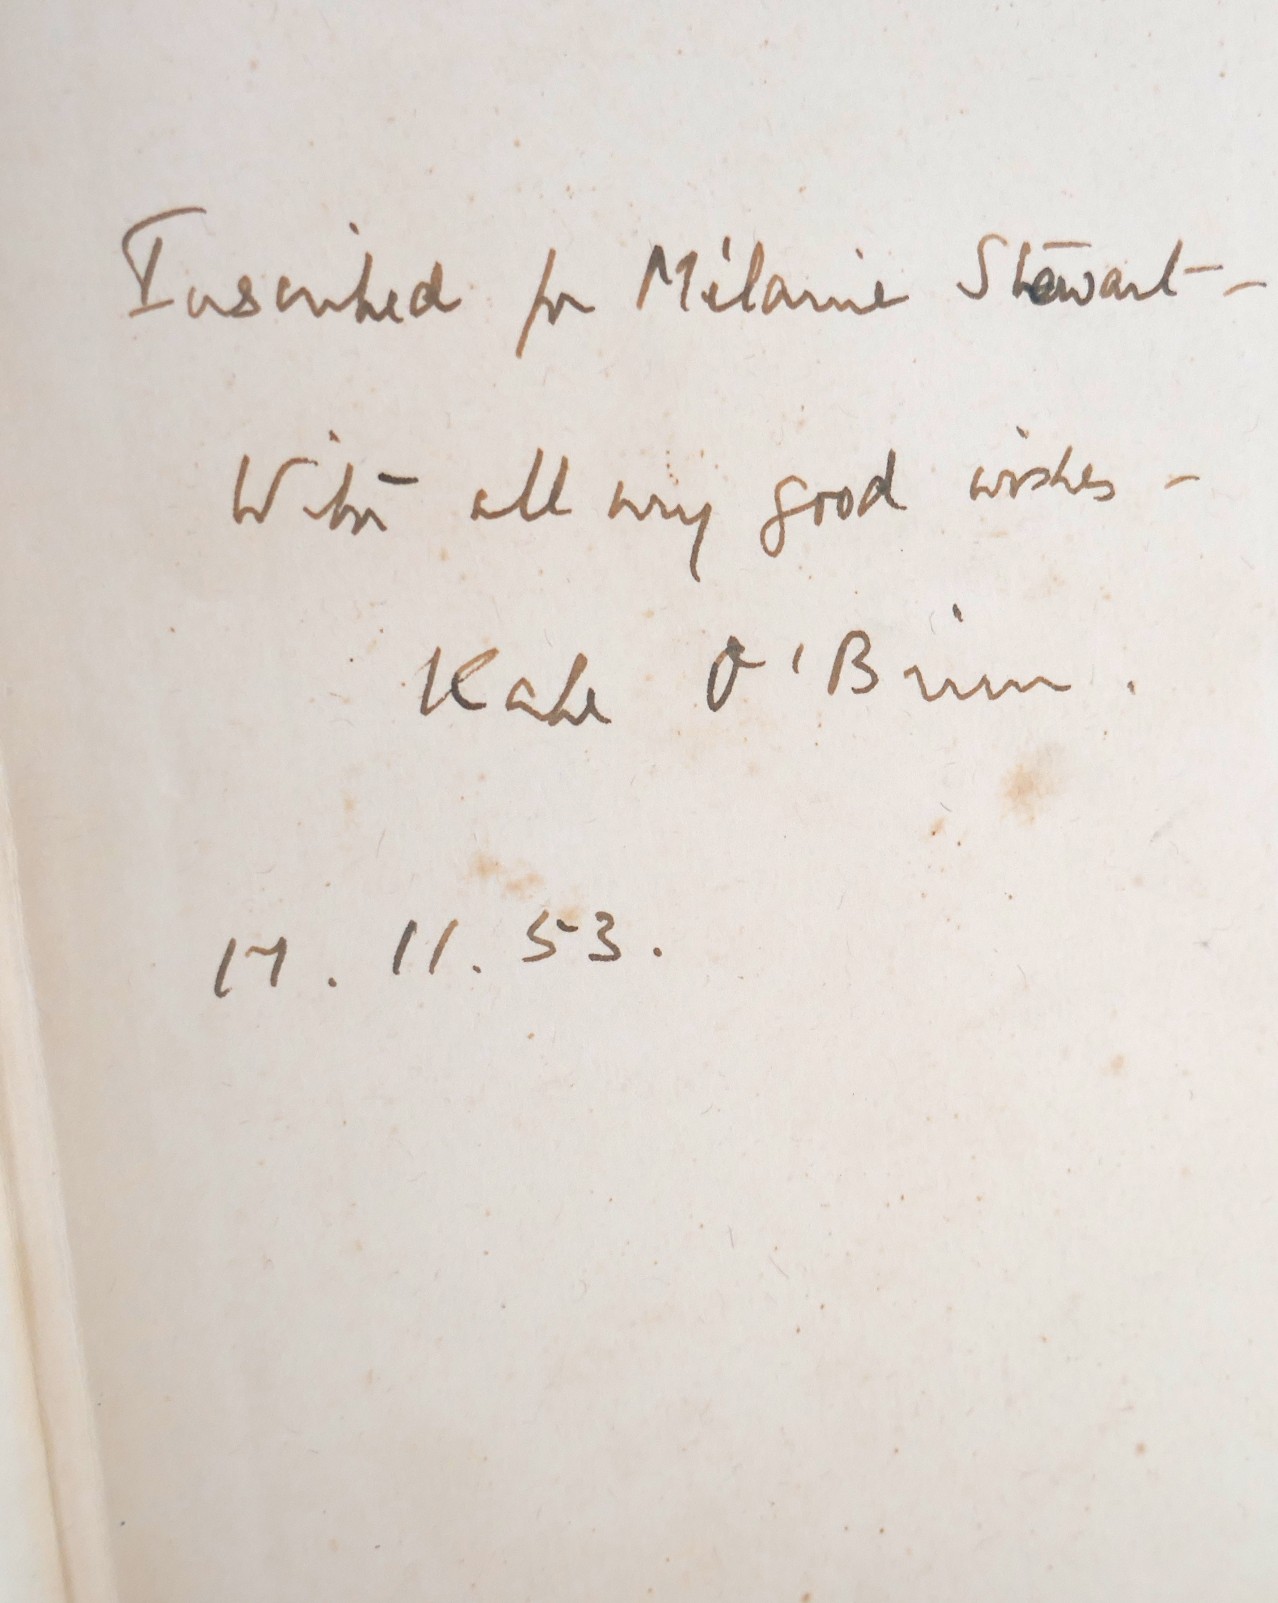 Inscribed for Mélanie Stewart –
With all my good wishes –
Kate O'Brien.
17. 11. 53.